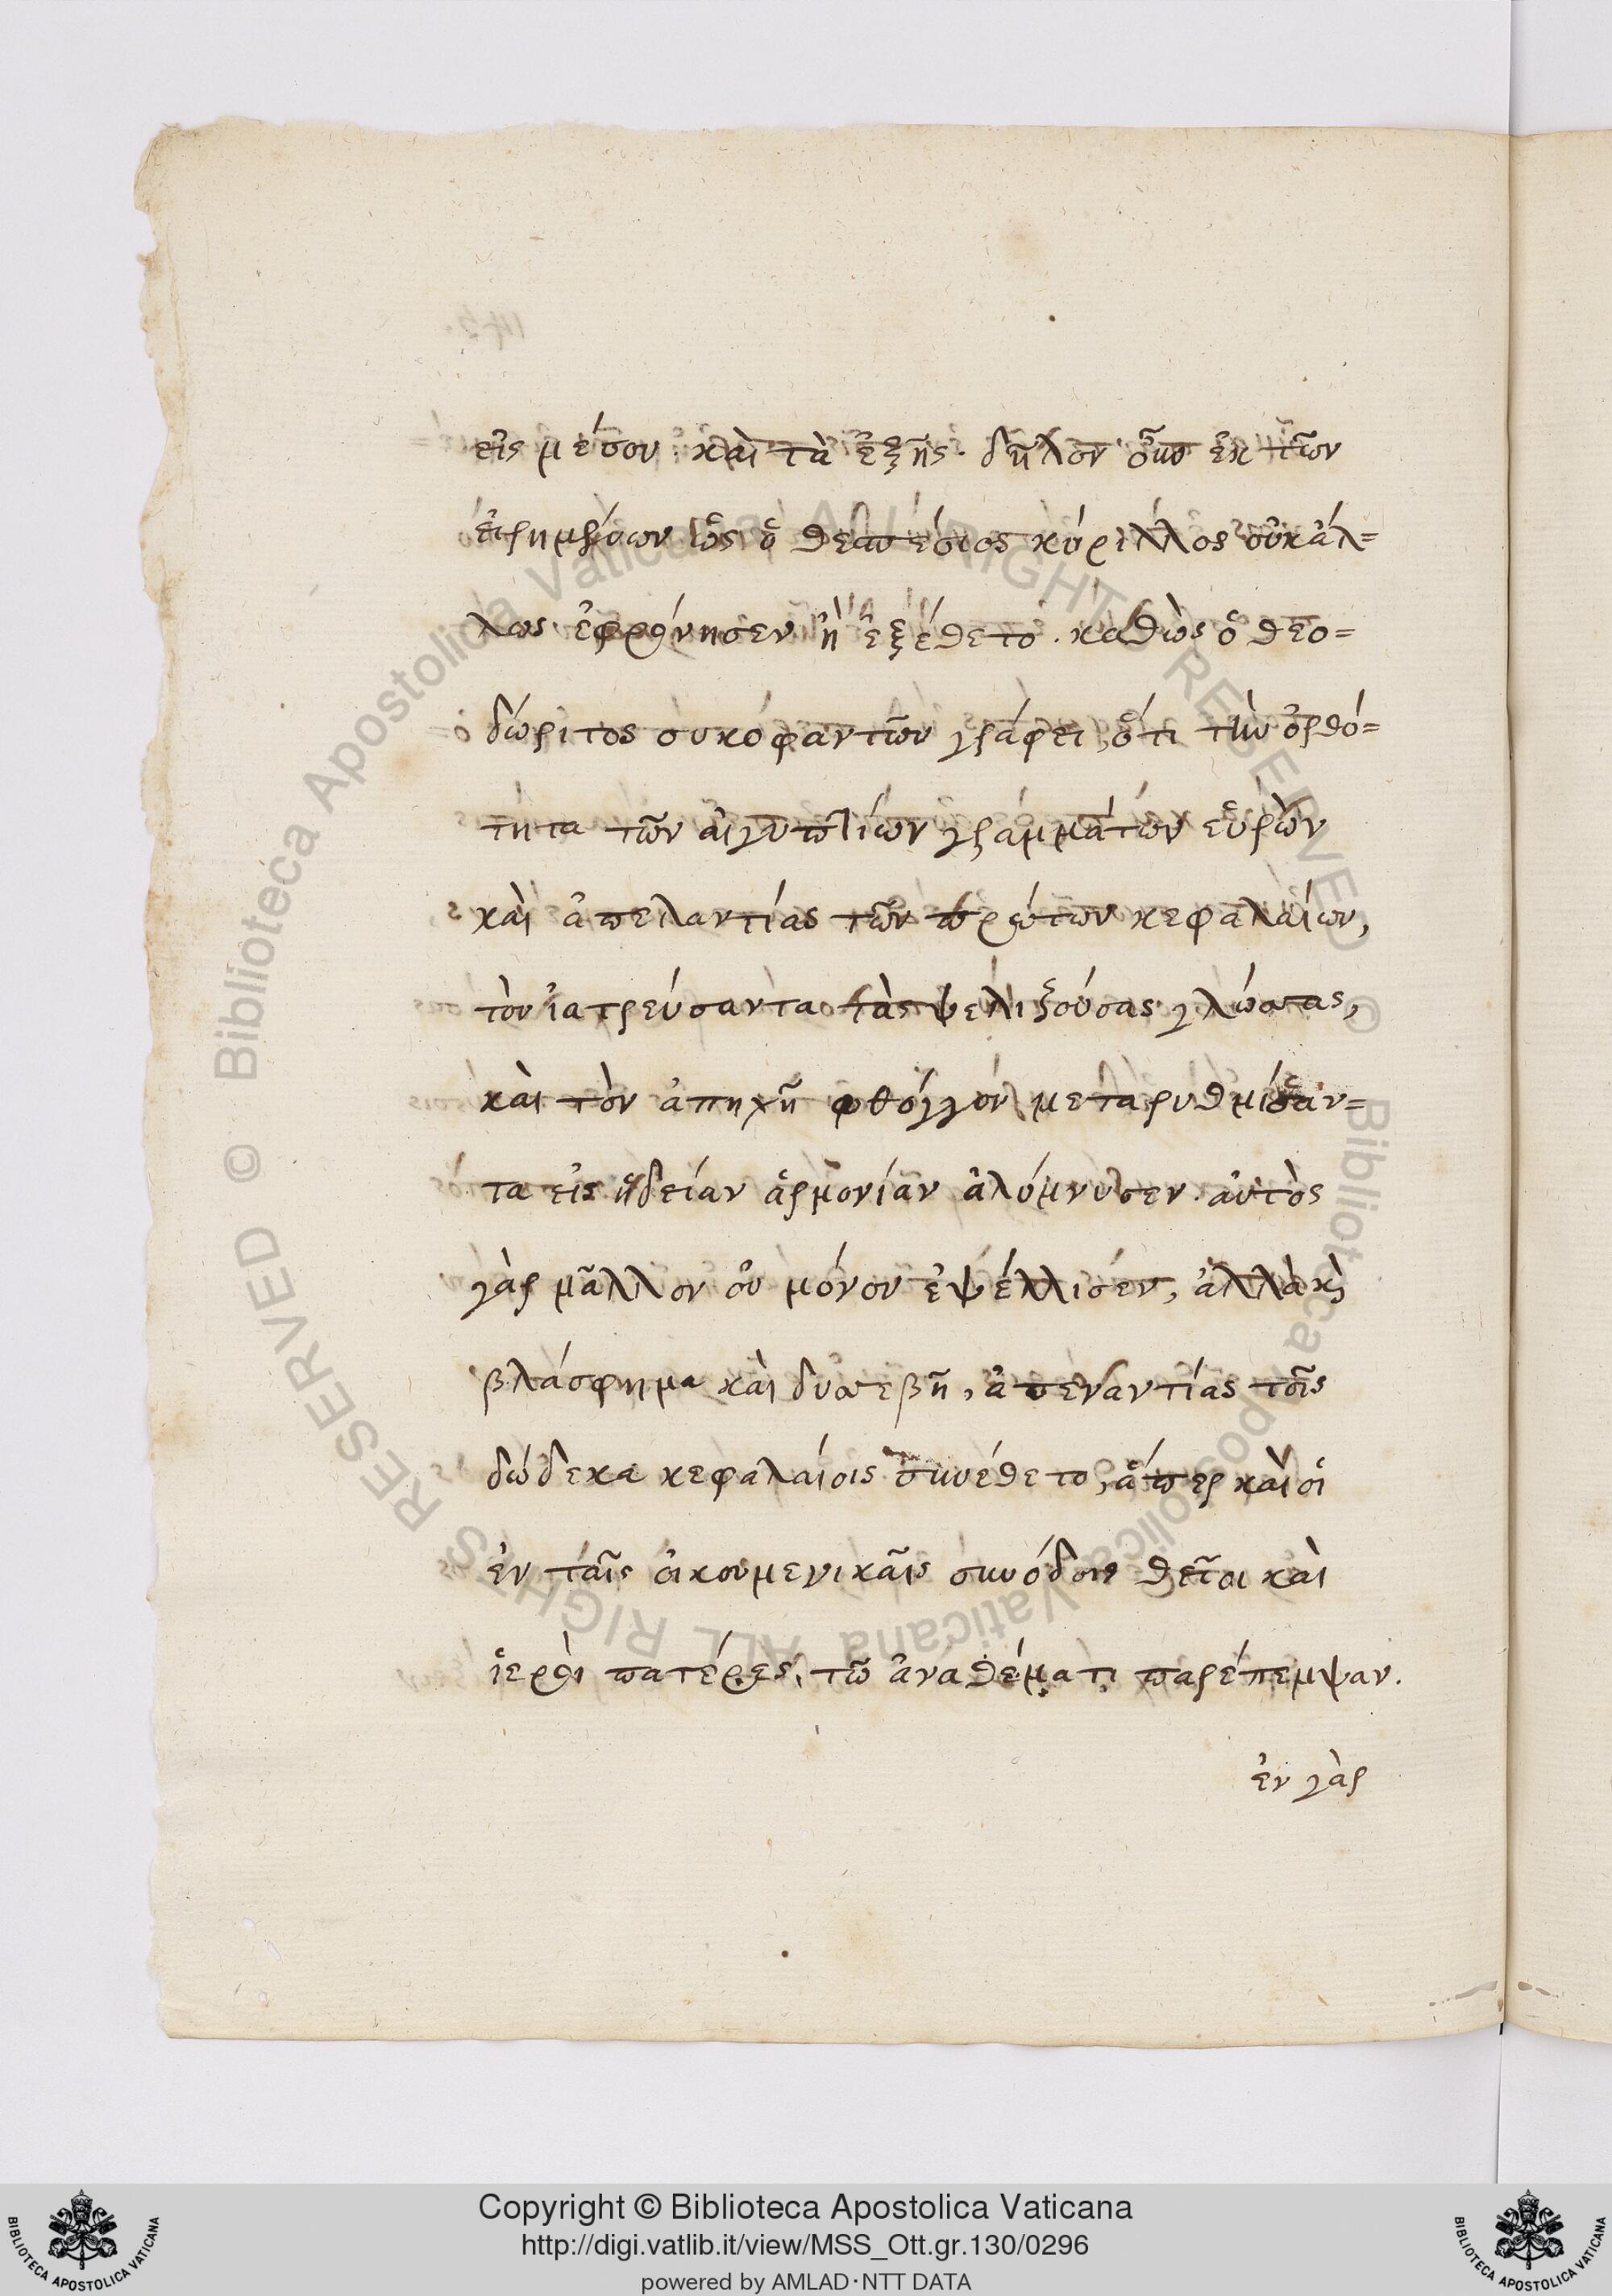 εἰς μέσον καὶ τὰ ἑξῆς. δῆλον οὖν ἐκ τῶν
εἰρημένων ὡς ὁ θεσπέσιος κύριλλος οὐκ ἄλ=
λως ἐφρόνησεν ἢ ἐξέθετο. καθὼς ὁ θεο=
δώριτος συκοφαντῶν γράφει, ὅτι τὴν ὀρθό=
τητα τῶν αἰγυπτίων γραμμάτων εὑρὼν
καὶ ἀπεναντίας τῶν πρώτων κεφαλαίων,
τὸν ἰατρεύσαντα τὰς ψελιζούσας γλώσσας,
καὶ τὸν ἀπηχῆ φθόγγον μεταρυθμίσαν=
τα εἰς ἡδείαν ἁρμονίαν
αὐτὸς
γὰρ μᾶλλον οὐ μόνον ἐψέλλισεν, ἀλλὰ κὶ
βλάσφημα καὶ δυσσεβῆ, ἀπεναντίας τοῖς
δώδεκα κεφαλαίοις συνέθετο, ἅπερ καὶ οἱ
ἐν ταῖς οἰκουμενικαῖς συνόδοις θεῖοι καὶ
ἱεροὶ πατέρες, τῶ ἀναθέματι παρέπεμψαν.
ἐν γὰρ
Copyright © Biblioteca Apostolica Vaticana
http://digi.vatlib.it/view/MSS_Ott.gr.130/0296
powered by AMLAD·NTT DATA
BIBLIOTECA APOSTOLICA VATICANA
BIBLIOTECA APOSTOLICA VATICANA
© Biblioteca Apostolica Vaticana ALL RIGHTS RESERVED
© Biblioteca Apostolica Vaticana ALL RIGHTS RESERVED